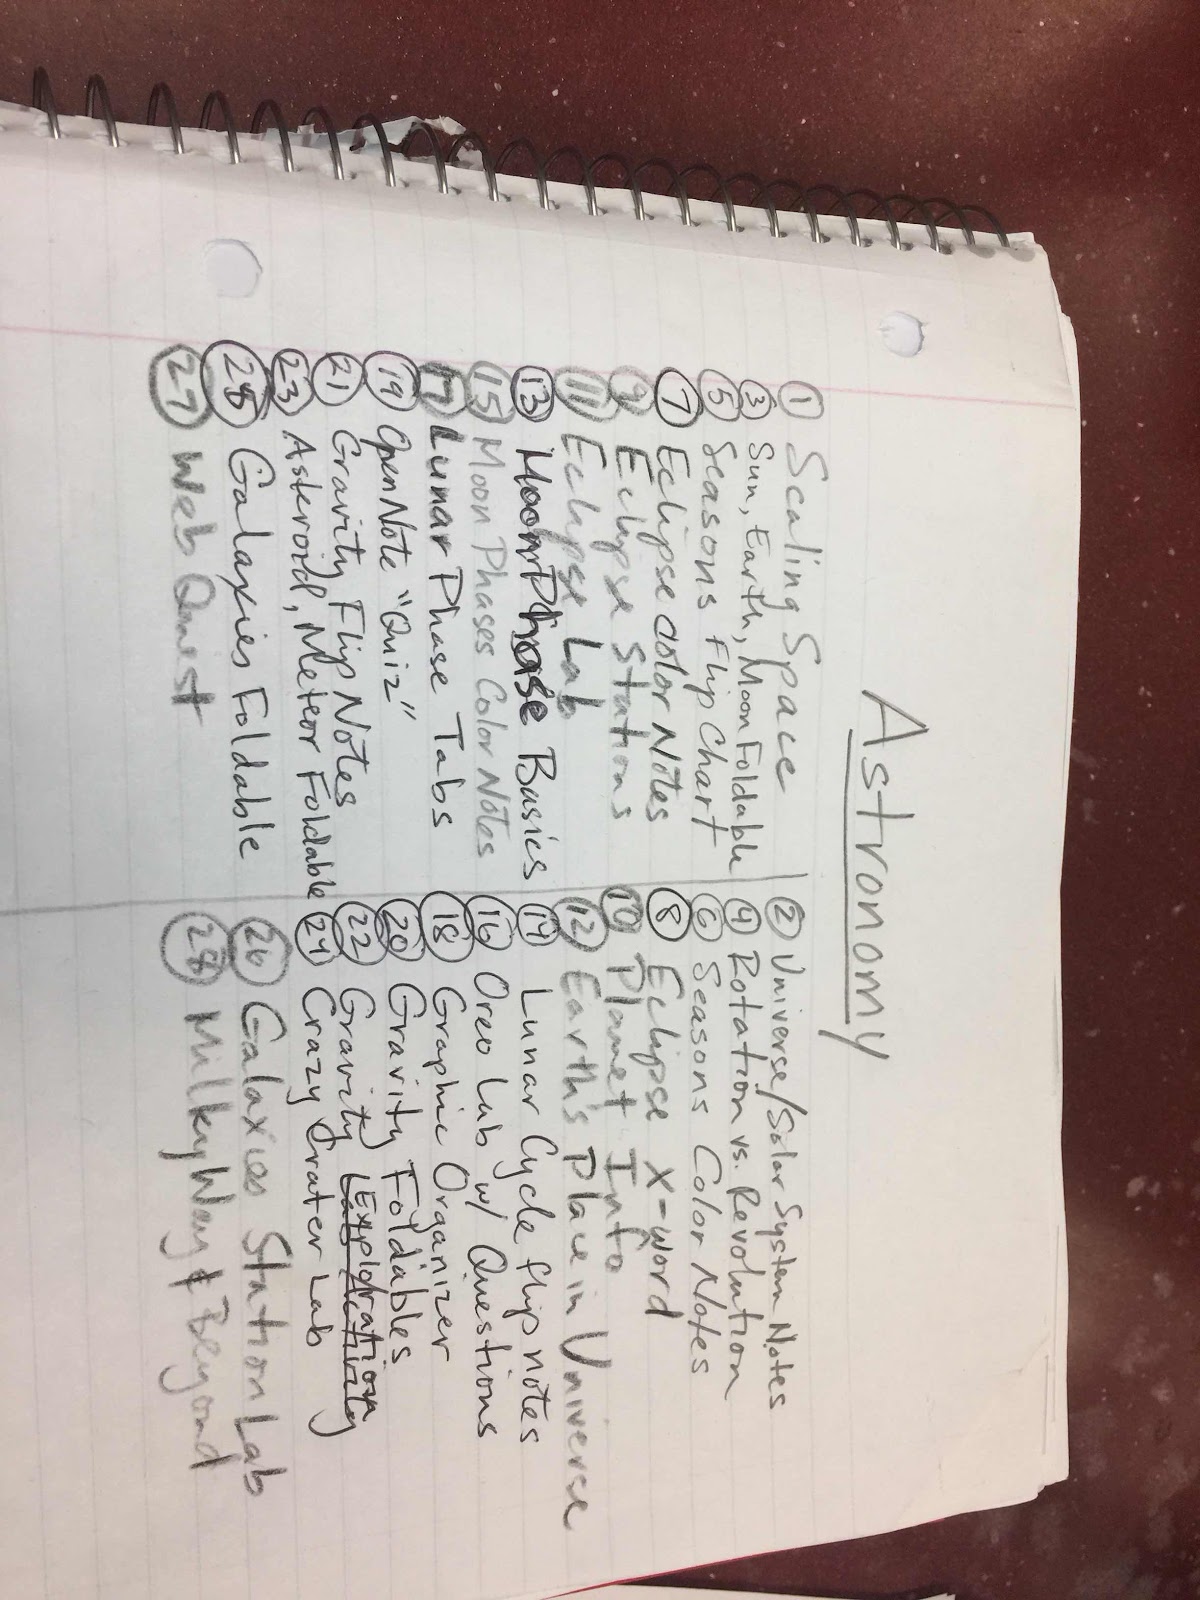 Astronomy
① Scaling Space
② Universe/Solar System Notes
③ Sun, Earth, Moon Foldable
④ Rotation vs. Revolution
⑤ Seasons Flip Chart
⑥ Seasons Color Notes
⑦ Eclipse Color Notes
⑧ Eclipse X-word
⑨ Eclipse Stations
⑩ Planet Info
⑪ Eclipse Lab
⑫ Earth's Place in Universe
⑬ Moon Phase Basics
⑭ Lunar Cycle flip notes
⑮ Moon Phases Color Notes
⑯ Oreo Lab w/ Questions
⑰ Lunar Phase Tabs
⑱ Graphic Organizer
⑲ Open Note "Quiz"
⑳ Gravity Foldables
㉑ Gravity Flip Notes
㉒ Gravity Exploration
㉓ Asteroid, Meteor Foldable
㉔ Crazy Crater Lab
㉕ Galaxies Foldable
㉖ Galaxies Station Lab
㉗ Web Quest
㉘ Milky Way & Beyond